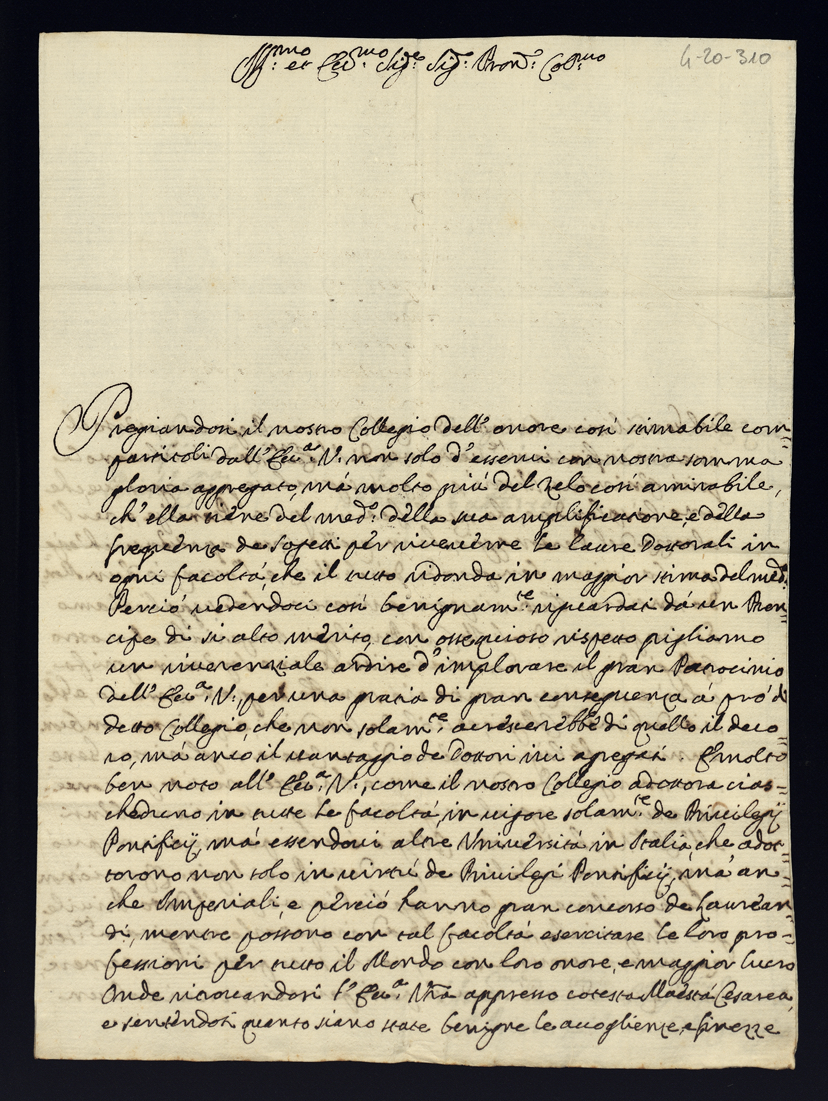 Ill.mo et Ecc.mo Sig.e Sig.e Pron.e Col.mo
4-20-310
Pregiandosi il nostro Collegio dell'onore così stimabile com=
partitoli dall'Ecc.a V. non solo d'esservi con nostra somma
gloria appregato, mà molto più del zelo così amirabile,
ch'ella tiene del med.o della sua amplificatione, e della
frequenza de Sogetti per riceverne le lauree Dottorali in
ogni facoltà, che il tutto ridonda in maggior stima del med.o
Perciò vedendoci così benignam.te riguardati dà un Pren=
cipe di sì alto mérito, con ossequioso rispetto pigliamo
un riverenziale ardire d'implorare il gran Patrocinio
dell'Ecc.a V., per una gratia di gran conseguenza à prò di
detto Collegio, che non solam.te acrescerebbe di quello il deco=
ro, mà anco il vantaggio de Dottori ivi agregati. È molto
ben noto all'Ecc.a V., come il nostro Collegio adottora cias=
cheduno in tutte le facoltà in vigore solam.te de Privilegij
Pontificij, mà essendovi altre Università in Italia, che adot=
torono non solo in virtù de Privilegi Pontificij, mà an=
che Imperiali, e perciò hanno gran concorso de Laurean=
di, mentre possono con tal facoltà esercitare le loro pro=
fessioni per tutto il Mondo con loro onore, e maggior lucro
Onde ritrovandosi l'Ecc.a Vra appresso cotesta Maestà Cesarea,
e sentendosi quanto siano state benigne le accoglienze, e finezze